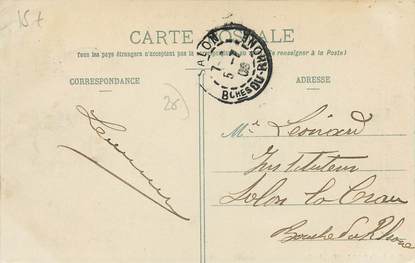 15t
CARTE POSTALE
Tous les pays étrangers n'acceptent pas la (Se renseigner à la Poste)
CORRESPONDANCE
ADRESSE
SALON
BCHES DU-RHONE
7-
5-7
09
26
Mr Léonard
Instituteur
Salon la Crau
Bouche du Rhône